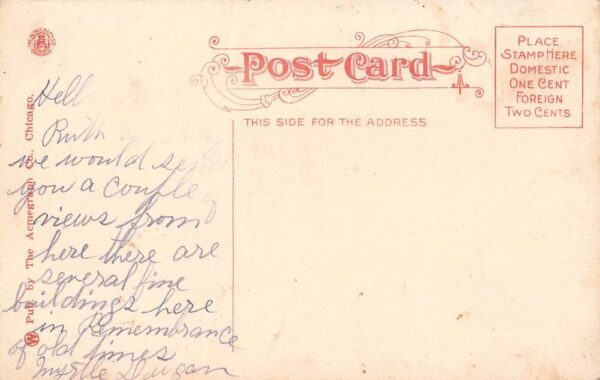 THE ACMEGRAPH CO.
CHICAGO
Post Card
THIS SIDE FOR THE ADDRESS.
PLACE
STAMP HERE
DOMESTIC
ONE CENT
FOREIGN
TWO CENTS
Pub. by The Acmegraph Co., Chicago.
Hell
Ruth
we would send
you a couple of
views from
here there are
several fine
buildings here
in Remembrance
of old times
Myrtle Dugan